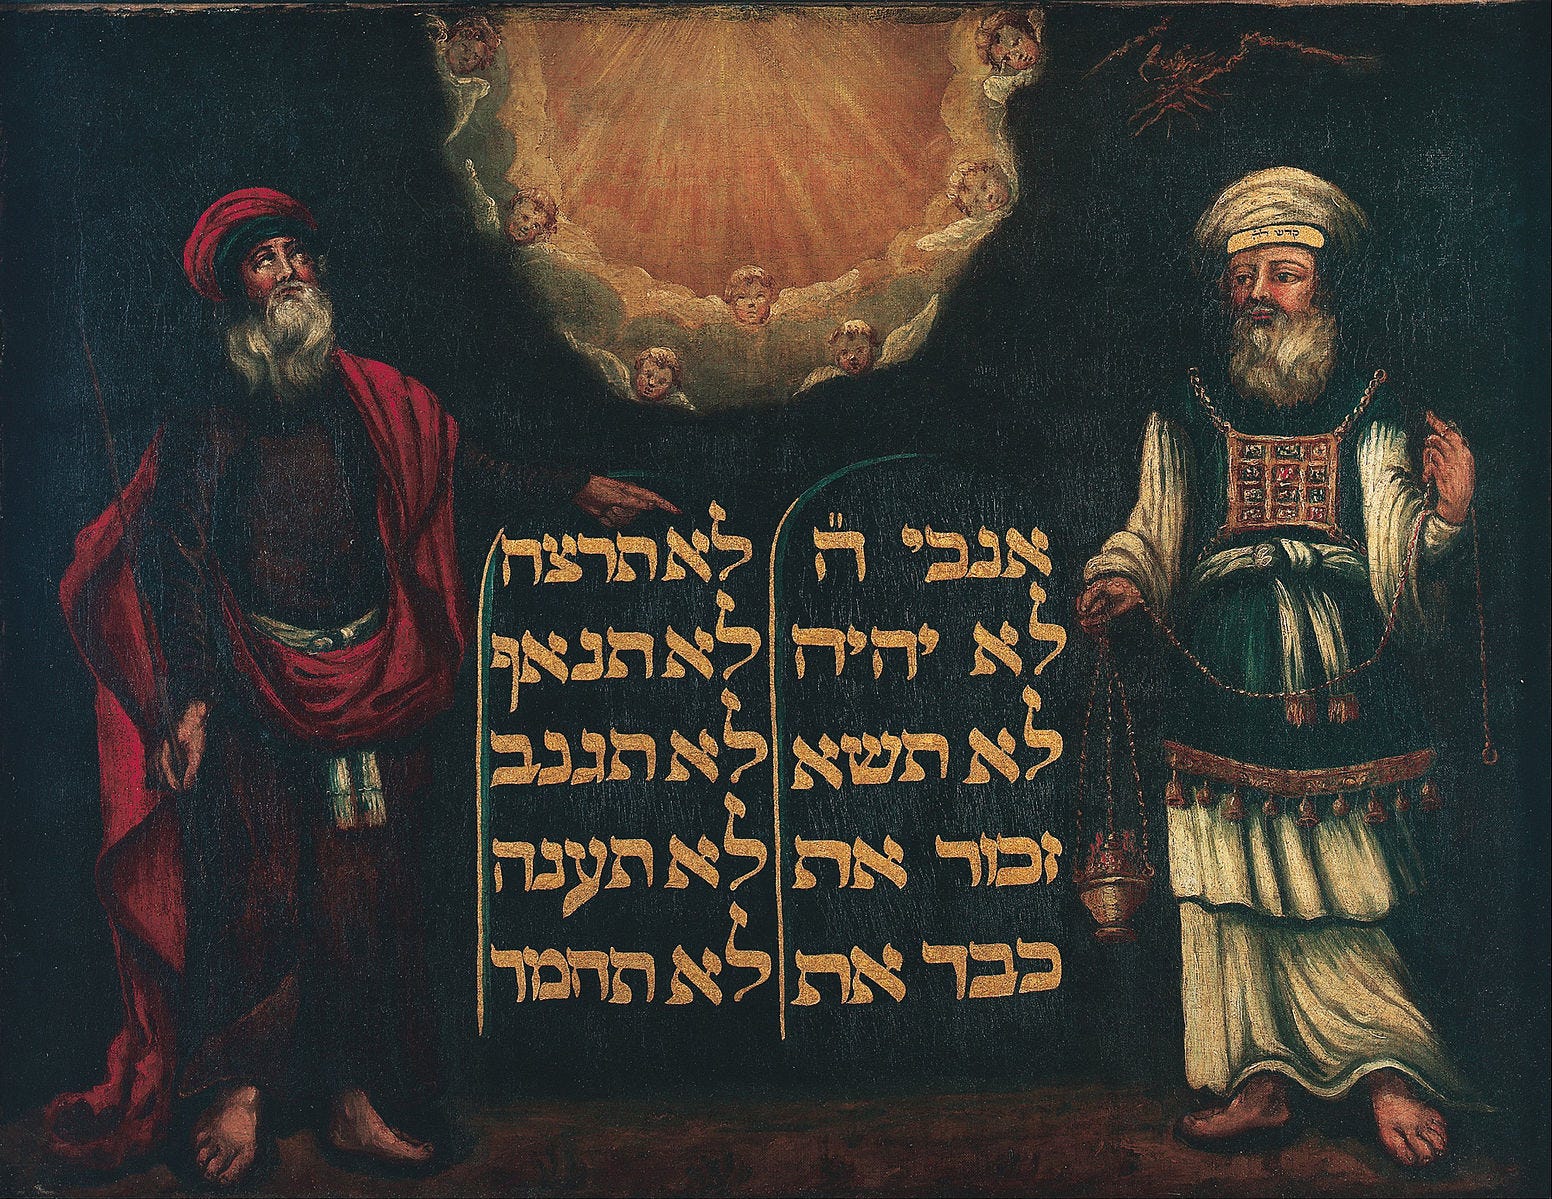 קדש
אנכי ה״
לא יהיה
לא תשא
זכור את
כבד את
לא תרצח
לא תנאף
לא תגנב
לא תענה
לא תחמד